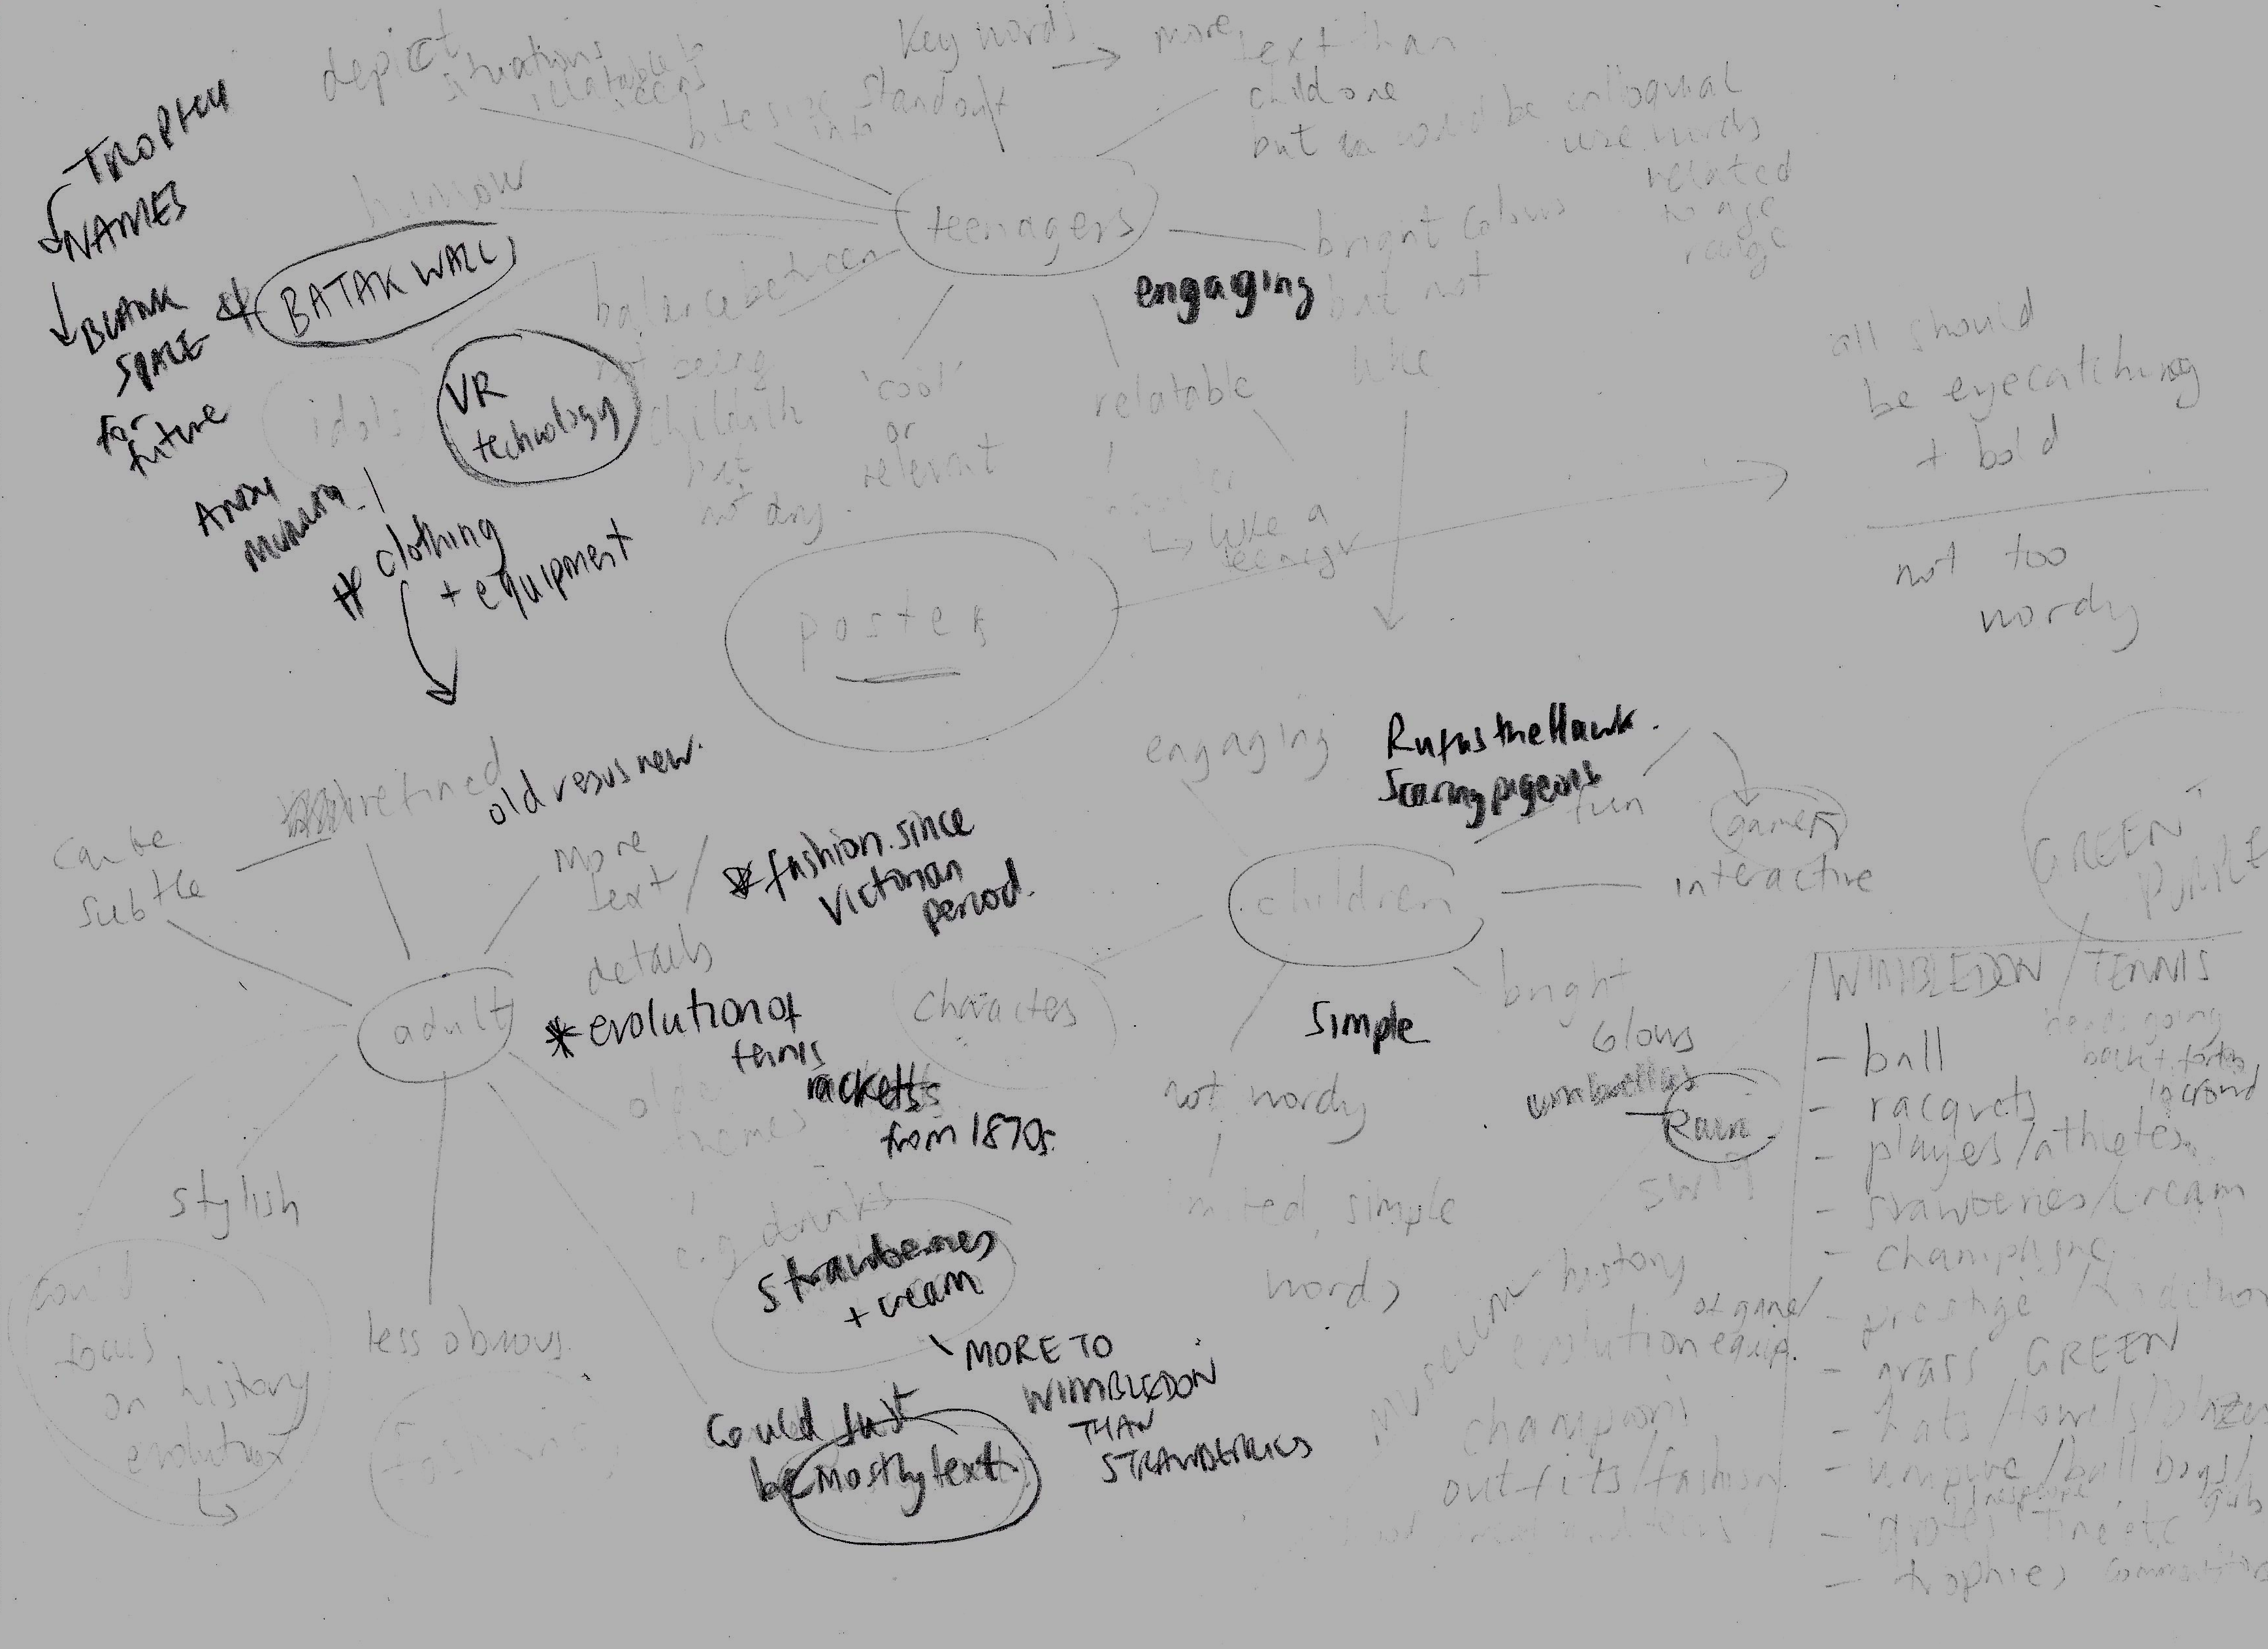 depict
situations
relatable to
teens
bite size
info
Key words
standout
→ more text than
child one
but
would be colloquial
use words
related
to age
range
TROPHY
NAMES
BLANK
SPACE
for
future
BATAK WALL
humour
teenagers
engaging
bright colours
but not
like
balance between
not being
childish
but
not dry.
'cool'
or
relevant
relatable
↳ like a
teenager
idols
VR
technology
Andy
# clothing
+ equipment
all should
be eyecatching
+ bold
not too
wordy
poster
refined
old vesus new.
can be
subtle
more
text /
details
* fashion. since
Victorian
period.
adult
* evolution of
tennis
racketts
from 1870s.
older
themes
e.g drinks
strawberries
+ cream
MORE TO
WIMBLEDON
THAN
STRAWBERRIES
Could just
be mostly text.
stylish
less obvious.
could
focus
on history
evolution
engaging
Rufus the Hawk.
Scaring pigeons
fun
games
interactive
children
characters
simple
bright
colours
umbrellas
Rain
not wordy
simple
words
SW19
museum
history
of game/
evolution equip.
champions
outfits/fashion
GREEN
PURPLE
WIMBLEDON / TENNIS
heads going
back + forth
in crowd
- ball
- racquets
- players/athletes
- strawberries/cream
- champagne
- prestige / tradition
- grass GREEN
- hats/towels/
- umpire/ball boys/
girls
- quotes etc
- trophies